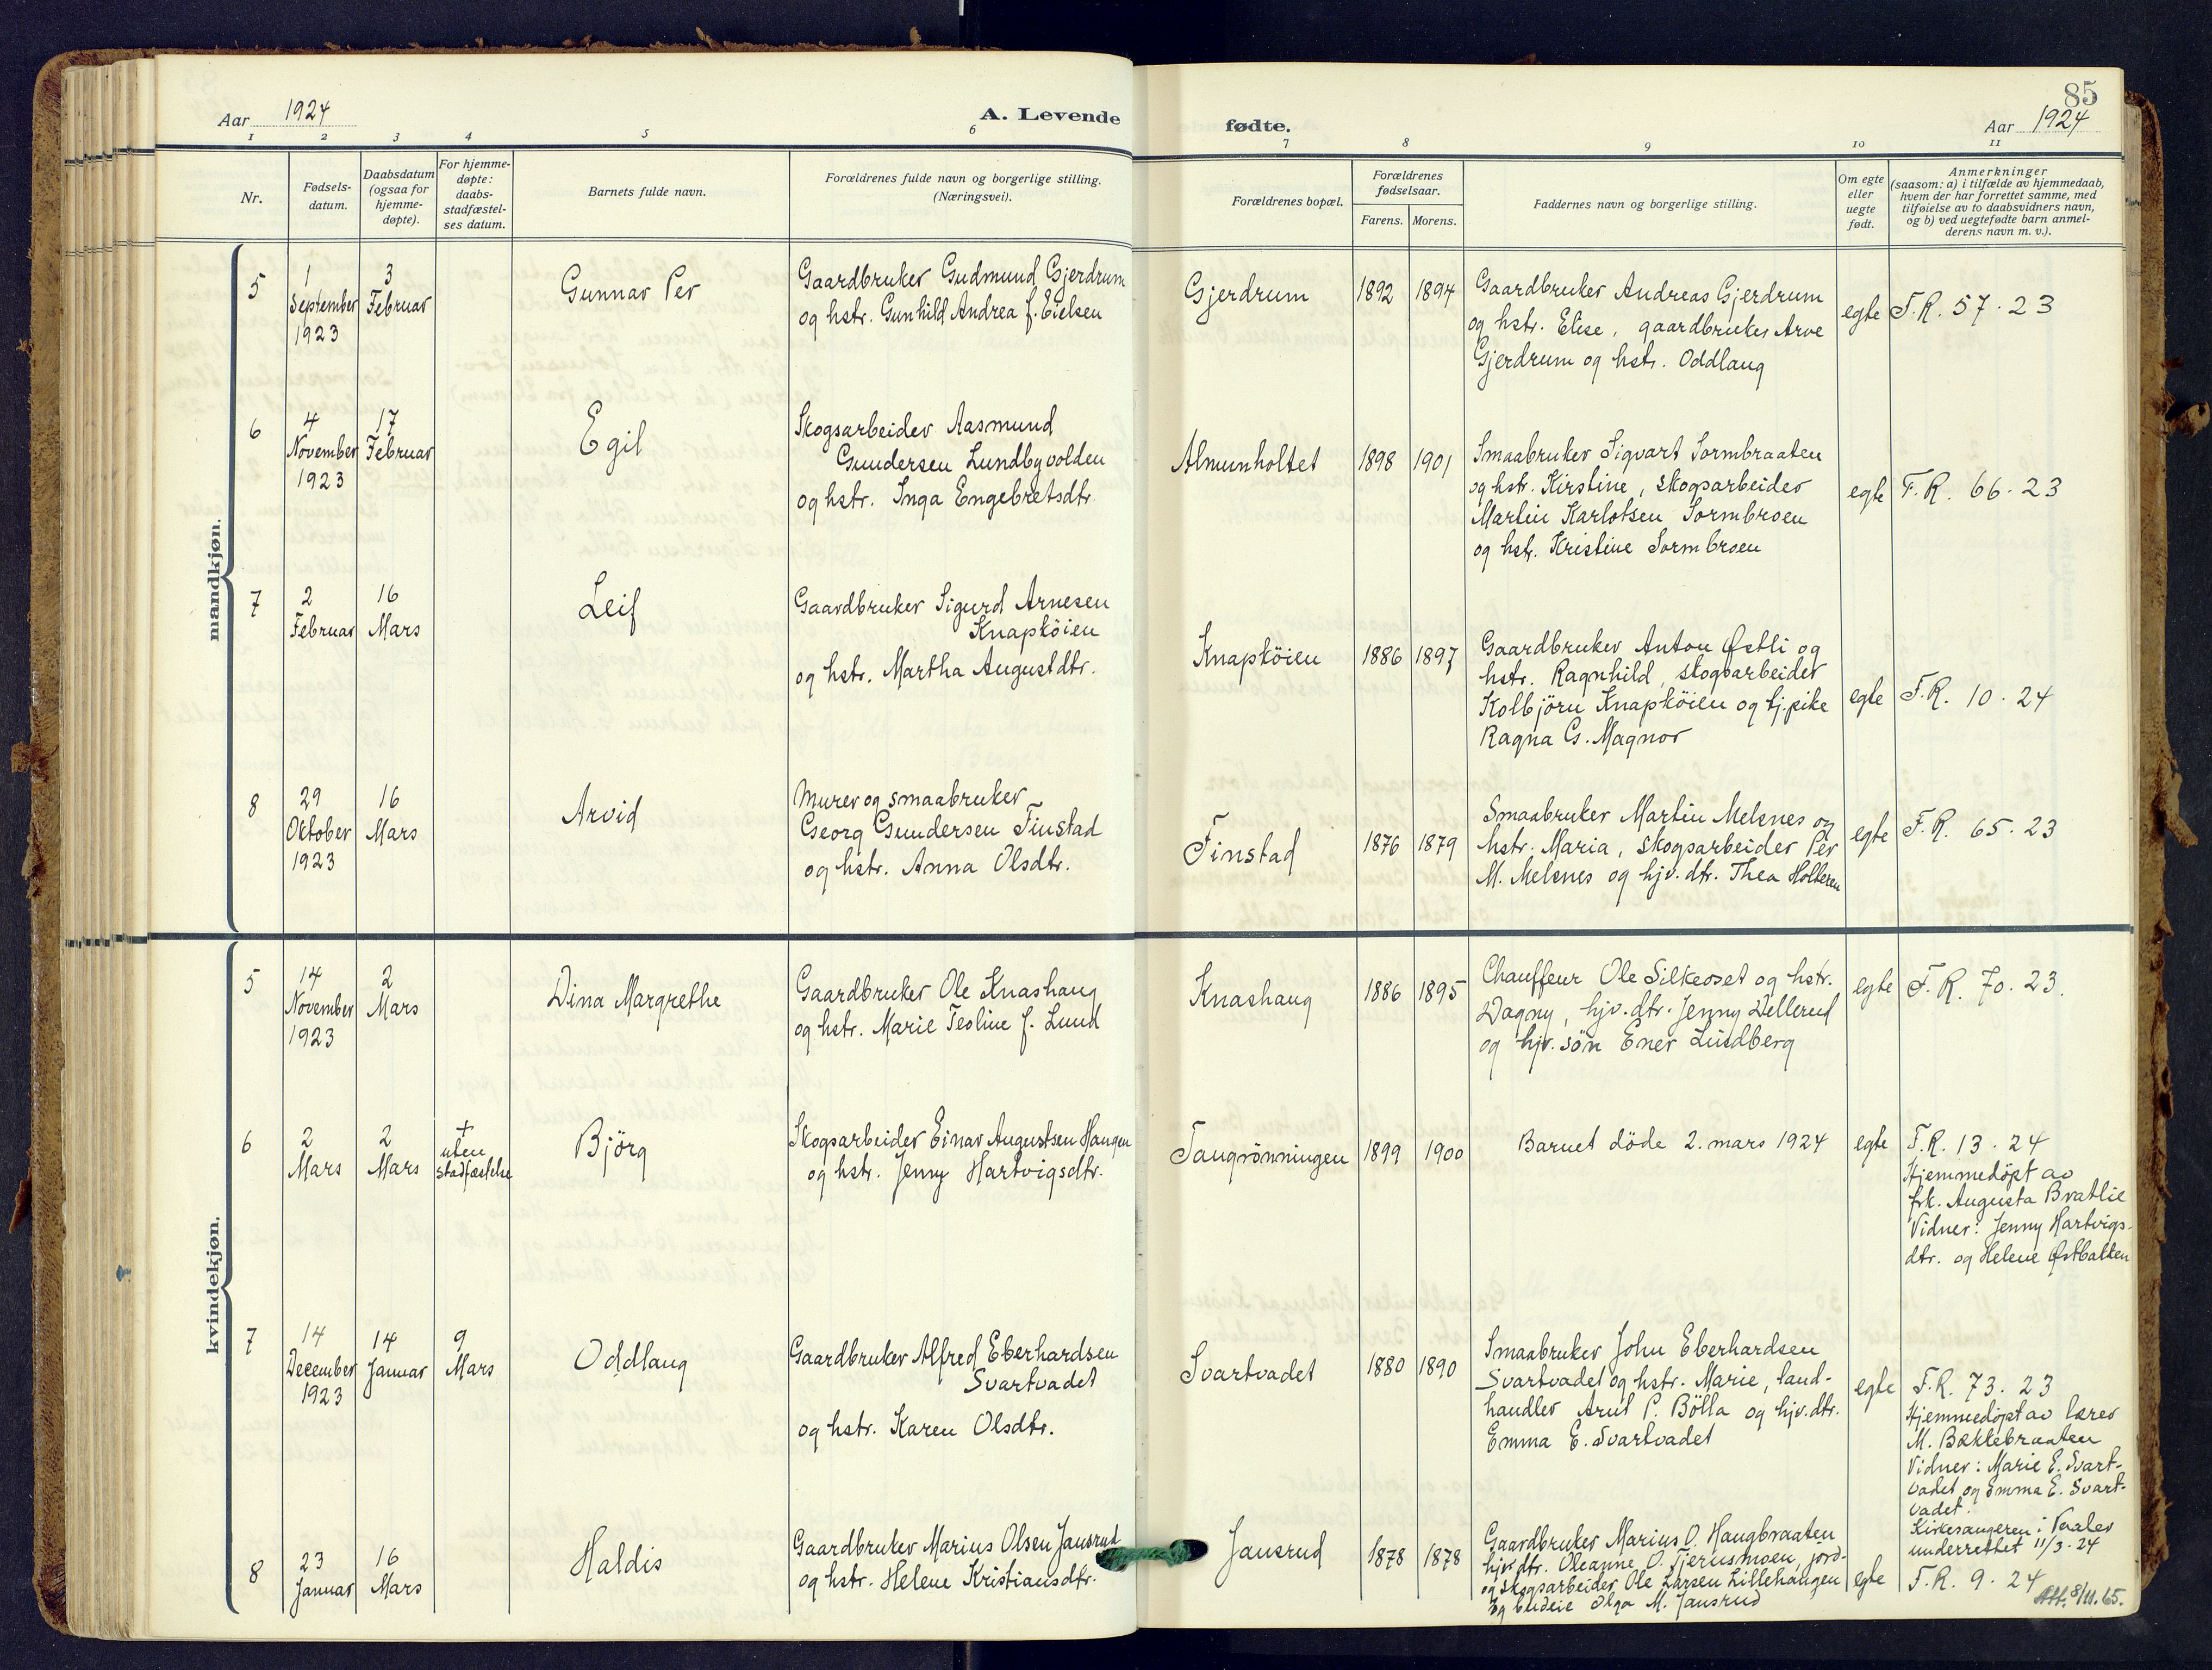 85
Aar 1924
A. Levende
fødte.
Aar 1924
1 2 3 4 5 6 7 8 9 10 11
Nr.
Fødsels-
datum.
Daabsdatum
(ogsaa for
hjemme-
døpte).
For hjemme-
døpte:
daabs-
stadfæstel-
ses datum.
Barnets fulde navn.
Forældrenes fulde navn og borgerlige stilling.
(Næringsvei).
Forældrenes bopæl.
Forældrenes
fødselsaar.
Farens. Morens.
Faddernes navn og borgerlige stilling.
Om egte
eller
uegte
født.
Anmerkninger
(saasom: a) i tilfælde av hjemmedaab,
hvem der har forrettet samme, med
tilføielse av to daabsvidners navn,
og b) ved uegtefødte barn anmel-
derens navn m. v.).
mandkjøn.
5
1
September
1923
3
Februar
Gunnar Per
Gaardbruker Gudmund Gjerdrum
og hstr. Gunhild Andrea f. Eielsen
Gjerdrum
1892
1894
Gaardbruker Andreas Gjerdrum
og hstr. Elise, gaardbruker Arve
Gjerdrum og hstr. Oddlaug
egte
F.R. 57. 23
6
4
November
1923
17
Februar
Egil
Skogsarbeider Aasmund
Gundersen Lundbyvolden
og hstr. Inga Engebretsdtr.
Almunholtet
1898
1901
Smaabruker Sigvart Sormbraaten
og hstr. Kirstine, skogsarbeider
Martin Karlotsen Sormbroen
og hstr. Kristine Sormbroen
egte
F.R. 66. 23
7
2
Februar
16
Mars
Leif
Gaardbruker Sigurd Arnesen
Knapköien
og hstr. Martha Augustdtr.
Knapköien
1886
1897
Gaardbruker Anton Østli og
hstr. Ragnhild, skogsarbeider
Kolbjörn Knapköien og tj.pike
Ragna G. Magnor
egte
F.R. 10. 24
8
29
Oktober
1923
16
Mars
Arvid
Murer og smaabruker
Georg Gundersen Finstad
og hstr. Anna Olsdtr.
Finstad
1876
1879
Smaabruker Martin Melsnes og
hstr. Maria, skogsarbeider Per
M. Melsnes og hjv. dtr. Thea Holteren
egte
F.R. 65. 23
kvindekjøn.
5
14
November
1923
2
Mars
Dina Margrethe
Gaardbruker Ole Knashaug
og hstr. Marie Teoline f. Lund
Knashaug
1886
1895
Chauffeur Ole Silkeoset og hstr.
Dagny, hjv. dtr. Jenny Dellerud
og hjv. sön Ener Lindberg
egte
F.R. 70. 23.
6
2
Mars
2
Mars
+
uten
stadfæstelse
Björg
Skogsarbeider Einar Augustsen Haugen
og hstr. Jenny Hartvigsdtr.
Taugrönningen
1899
1900
Barnet döde 2. mars 1924
egte
F.R. 13. 24
Hjemmedøpt av
frk. Augusta Bratlie
Vidner: Jenny Hartvigs-
dtr. og Helene Østbakken
7
14
December
1923
14
Januar
9
Mars
Oddlaug
Gaardbruker Alfred Eberhardsen
Svartvadet
og hstr. Karen Olsdtr.
Svartvadet
1880
1890
Smaabruker John Eberhardsen
Svartvadet og hstr. Marie, land-
handler Arnt P. Bölla og hjv. dtr.
Emma E. Svartvadet
egte
F.R. 73. 23
Hjemmedøpt av lærer
M. Bækkebraaten
Vidner: Marie E. Svart-
vadet og Emma E. Svart-
vadet.
Kirkesangeren i Vaaler
underrettet 11/3. 24
8
23
Januar
16
Mars
Haldis
Gaardbruker Marius Olsen Jansrud
og hstr. Helene Kristiansdtr.
Jansrud
1878
1878
Gaardbruker Marius O. Haugbraaten
hjv. dtr. Oleanne O. Tjernsmoen, jord-
og skogsarbeider Ole Larsen Lillehaugen
og budeie Olga M. Jansrud
egte
F.R. 9. 24
Att. 8/11. 65.